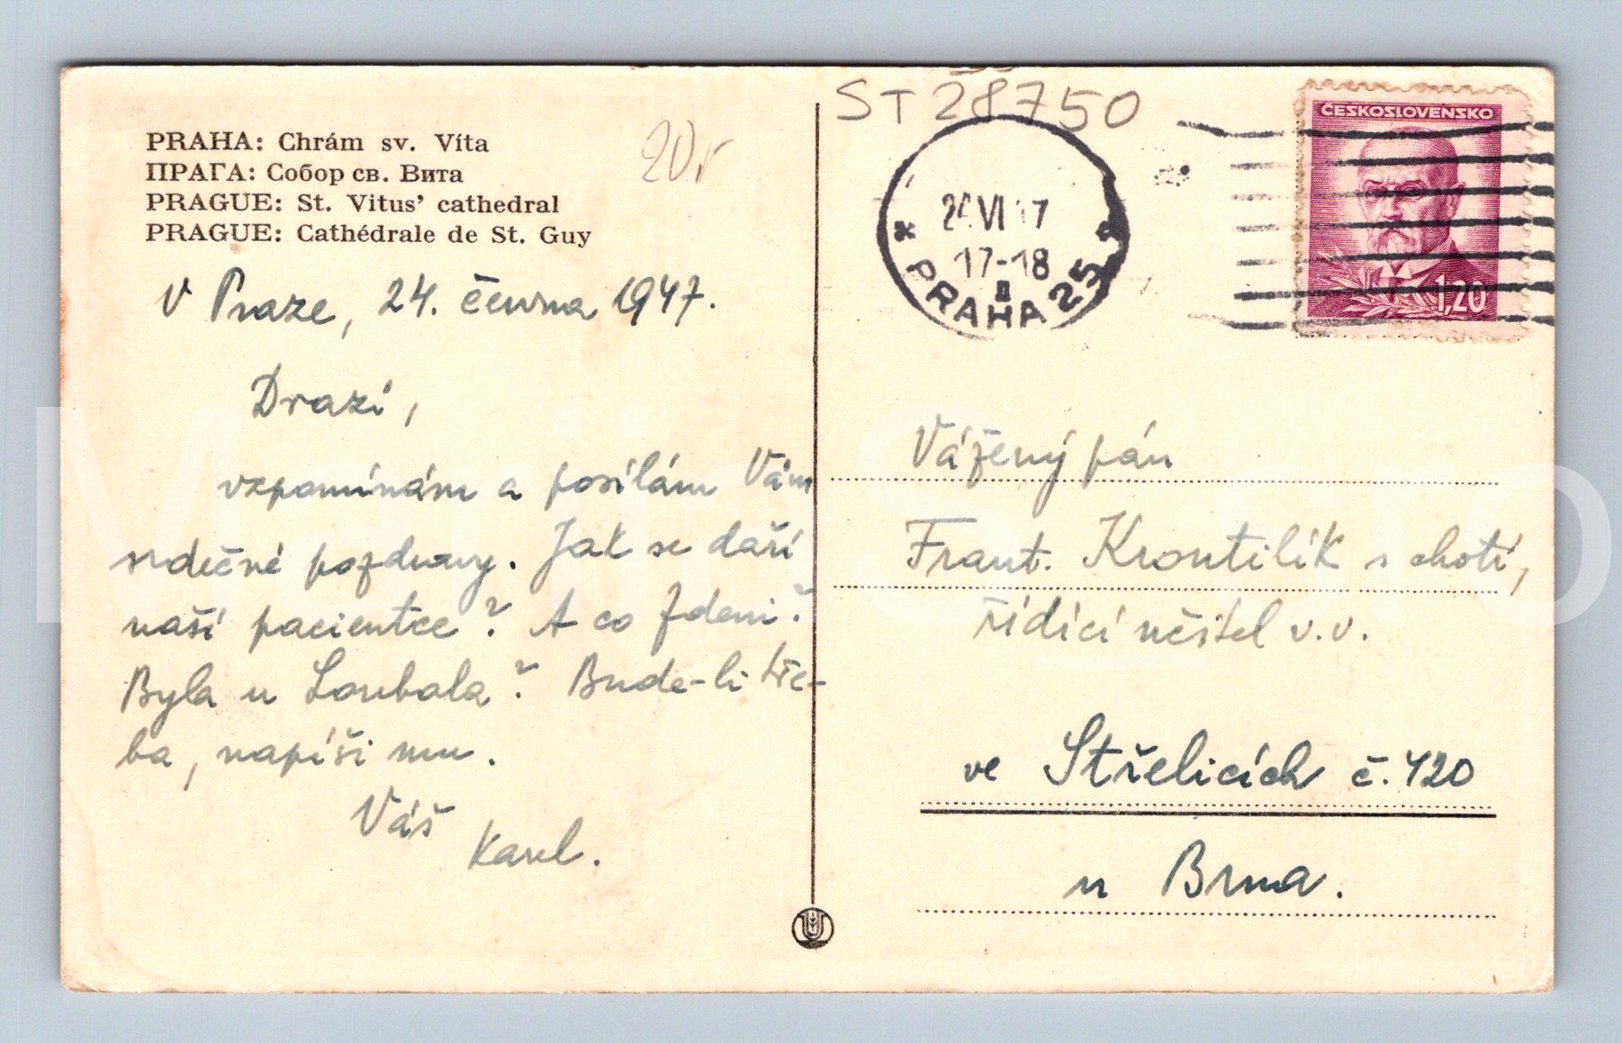 PRAHA: Chrám sv. Víta
ПРАГА: Собор св. Вита
PRAGUE: St. Vitus' cathedral
PRAGUE: Cathédrale de St. Guy
V Praze, 24. června 1947.
Drazí,
vzpomínám a posílám Vám
srdečné pozdravy. Jak se daří
naší pacientce? A co Zdeni?
Byla u Loubala? Bude-li tře-
ba, napíši mu.
Váš
Karel.
ST 28750
24.VI 47
17-18
PRAHA 25
ČESKOSLOVENSKO
1,20
Vážený pán
Frant. Kroutilík s chotí,
řídící učitel v.v.
ve Střelicích č. 420
u Brna.